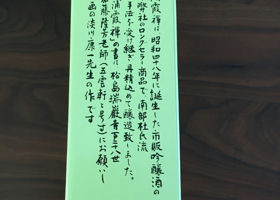 霞禅は昭和四十八年に誕生した市販吟醸酒の
弊社のロングセラー商品で、南部杜氏流
手法を受け継ぎ丹精込めて醸造致しました。
浦霞禅」の書は松島瑞巌寺百二十八世
加藤隆芳老師(五雲軒と号す)にお願いし
画の淡川康一先生の作です